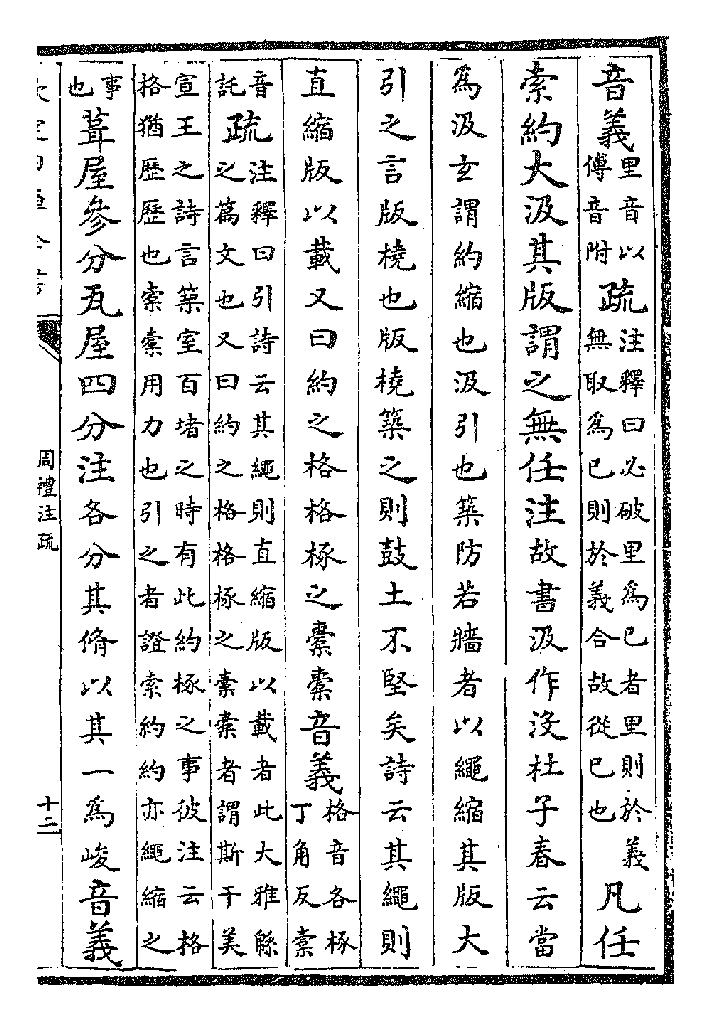 音義里音以傅音附疏注釋曰必破里爲已者里則於義無取爲已則於義合故從已也凡任
索約大汲其版謂之無任注故書汲作沒杜子春云當
爲汲玄謂約縮也汲引也築防若牆者以繩縮其版大
引之言版橈也版橈築之則鼓土不堅矣詩云其繩則
直縮版以載又曰約之格格椓之橐橐音義格音各椓丁角反橐
音託疏注釋曰引詩云其繩則直縮版以載者此大雅緜之篇文也又曰約之格格椓之橐橐者謂斯干美
宣王之詩言築室百堵之時有此約椓之事彼注云格格猶歷歷也橐橐用力也引之者證索約約亦繩縮之
事也葺屋參分瓦屋四分注各分其脩以其一爲峻音義
周禮注疏
十二